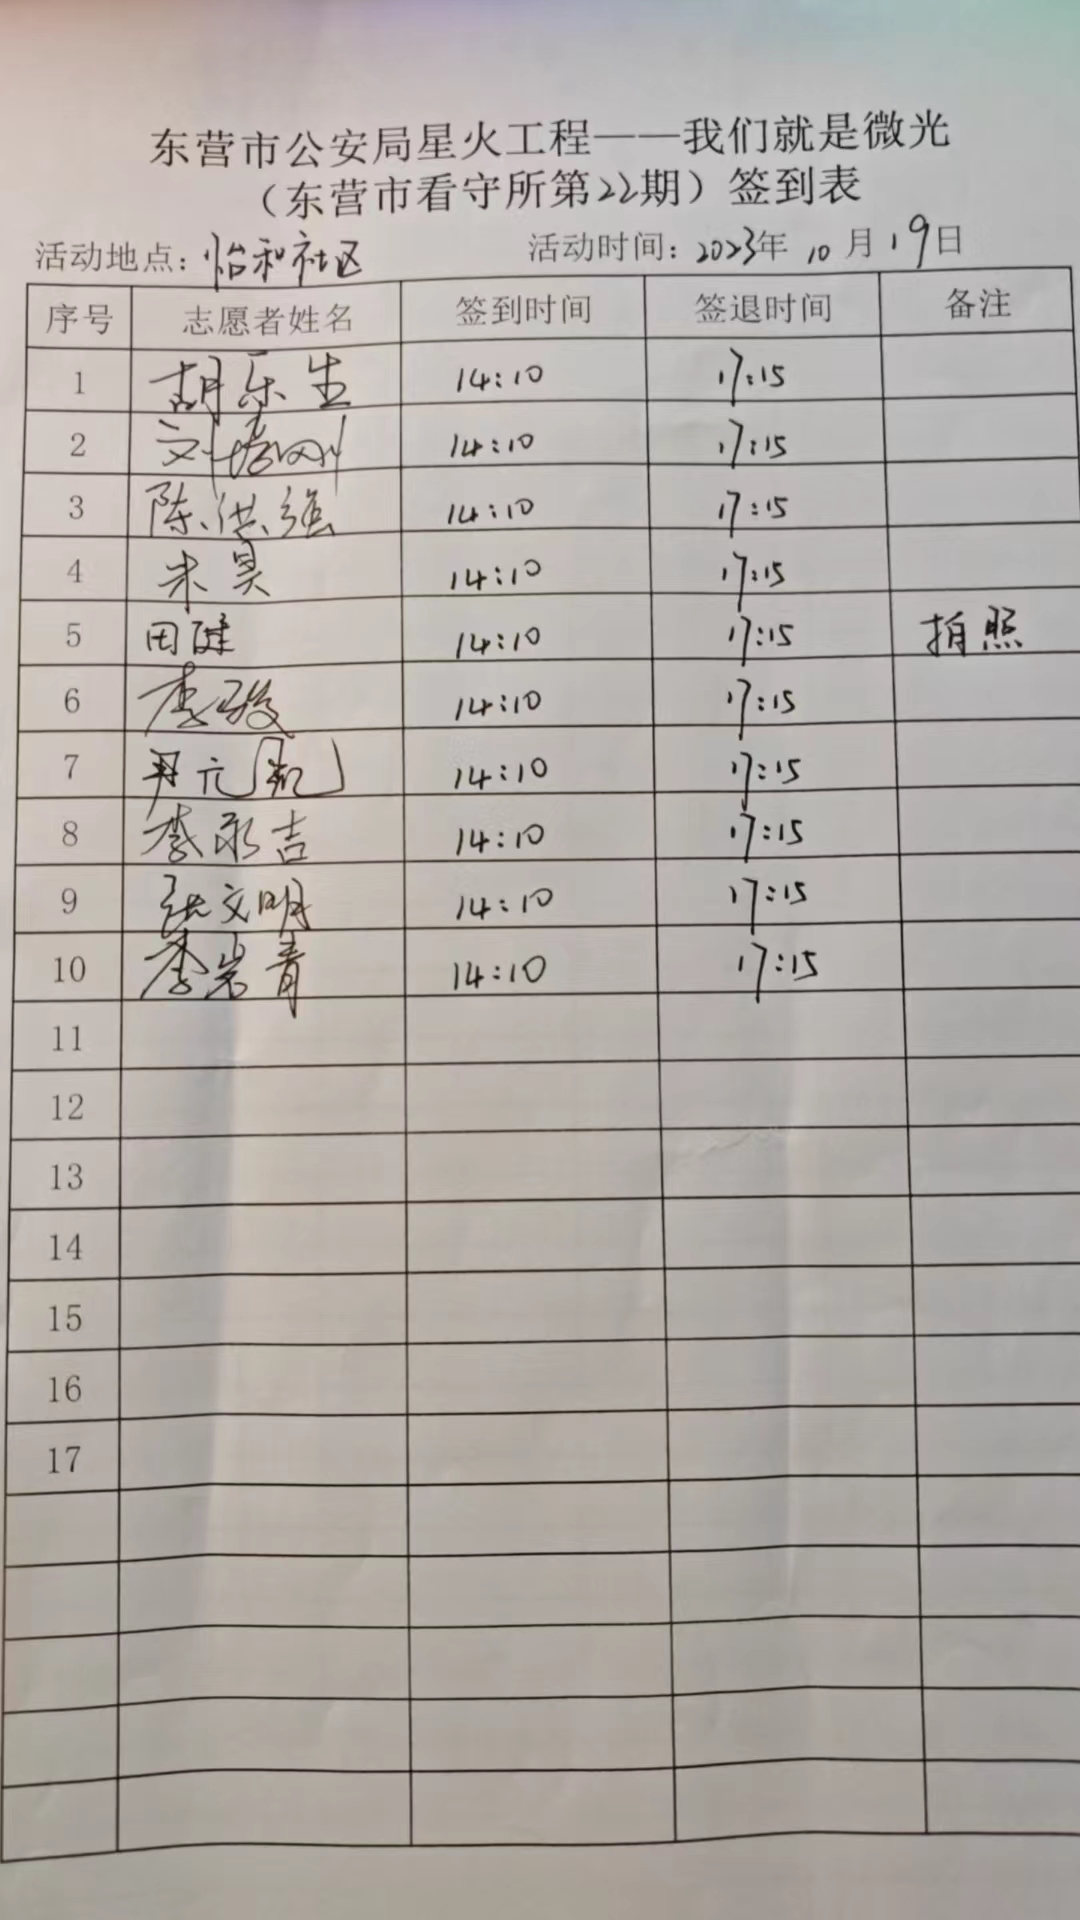 东营市公安局星火工程——我们就是微光
（东营市看守所第22期）签到表
活动地点：怡和社区 活动时间：2023年10月19日
序号 志愿者姓名 签到时间 签退时间 备注
1 胡乐生 14:10 17:15
2 刘培刚 14:10 17:15
3 陈洪强 14:10 17:15
4 米昊 14:10 17:15
5 田健 14:10 17:15 拍照
6 李骏 14:10 17:15
7 尹亢凯 14:10 17:15
8 李永吉 14:10 17:15
9 张文明 14:10 17:15
10 李岩青 14:10 17:15
11
12
13
14
15
16
17